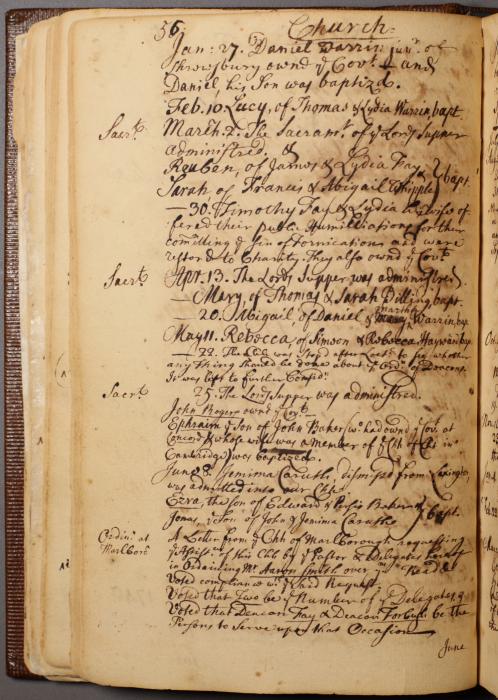 56. Church.
Jan: 27. Daniel Warrin junr. of
Shrewsbury ownd ye Covt. and
Daniel, his Son was baptizd.
Feb. 10. Lucy, of Thomas & Lydia Warrin, bapt.
Sacrt. March. 2. The Sacramt. of ye Lords Supper
administred. &
Reuben, of James & Lydia Fay &
Sarah of Francis & Abigail Whipple } bapt.
— 30. Timothy Fay & Lydia his Wife of-
fered their Public Humiliations for their
committing ye Sin of Fornication and were
restord to Charity. They also ownd ye Covt.
Sacrt. Apr. 13. The Lords Supper was administred.
— Mary, of Thomas & Sarah Billing, bapt.
— 20. Abigail, of Daniel & Martha Warrin, bap
May 11. Rebecca, of Simeon & Rebecca Hayward bap
— 22. The Chh was Stopd after Lect. to see whether
any thing should be done about ye Ordn. of Deacons.
It was left to further Considn.
Sacrt 25. The Lords Supper was administred.
John Rogers ownd ye Covt.
Ephraim ye Son of John Baker (wo. had ownd ye Covt. at
Concord & whose wife was a Member of ye Chh of in
Cambridge) was baptized.
June 8. Jemima Caruth, dismissd from Lexington,
was admitted into our Chh.
Ezra, the Son of Edward & Persis Baker &
Jonas, ye Son of John & Jemima Caruth } bapt.
Ordinn. at Marlboro. A Letter from ye Chh of Marlborough requesting
ye Assistc. of this Chh by ye Pastor & Delegates thereof
in Ordaining Mr. Aaron Smith over ym. was Read &
Voted compliance wth. ye Said Request.
Voted that Two be ye Number of ye Delegates, &
Voted that Deacon Fay & Deacon Forbush be the
Persons to Serve upon that Occasion
June